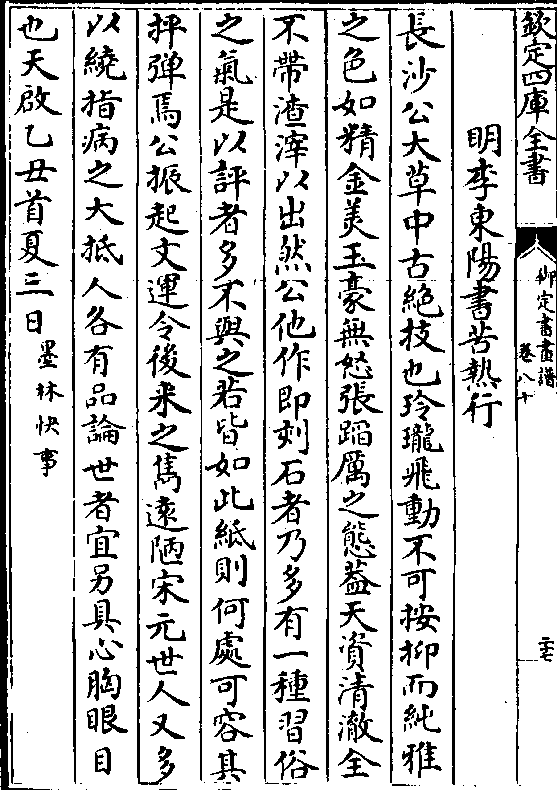 欽定四庫全書
御定書畫譜
卷八十
二七
明李東陽書苦熱行
長沙公大草中古絕技也玲瓏飛動不可按抑而純雅
之色如精金美玉毫無怒張蹈厲之態葢天資清澈全
不帶渣滓以出然公他作即刻石者乃多有一種習俗
之氣是以評者多不與之若皆如此紙則何處可容其
抨彈焉公振起文運令後来之雋遠陋宋元世人又多
以繞指病之大抵人各有品論世者宜另具心胸眼目
也天啟乙丑首夏三日墨林快事